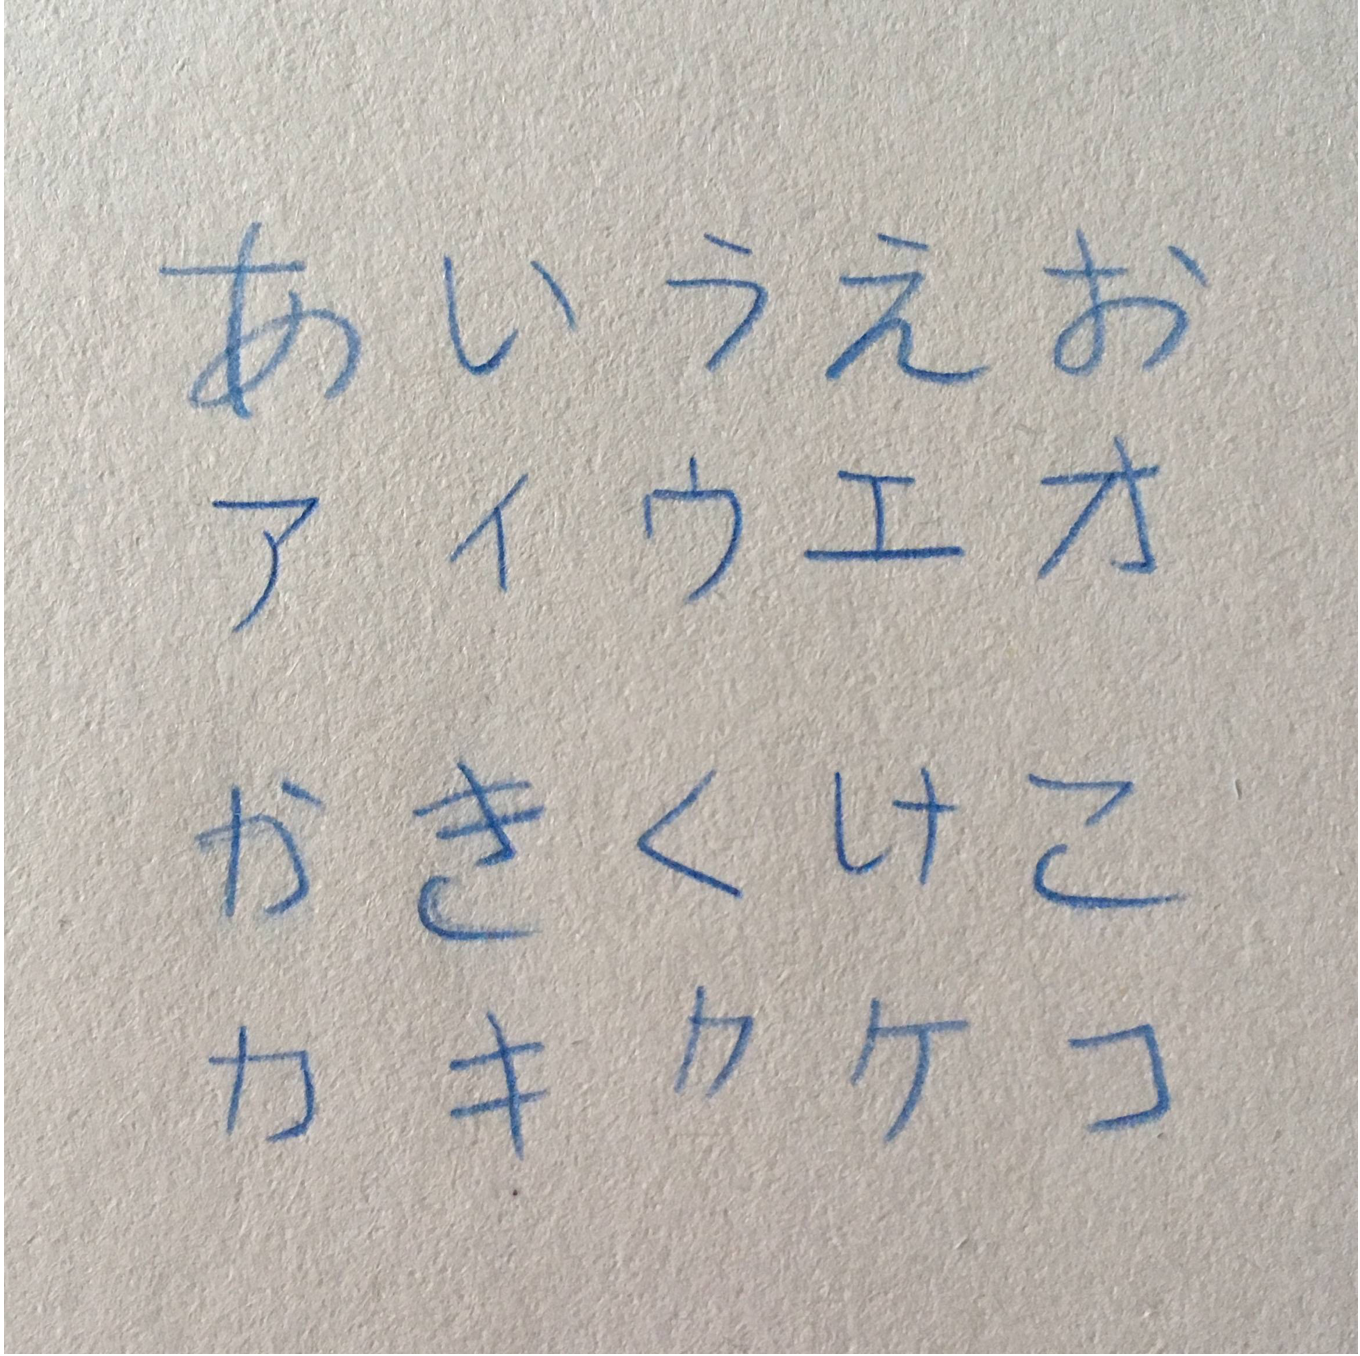 あいうえお
アイウエオ
かきくけこ
カキクケコ